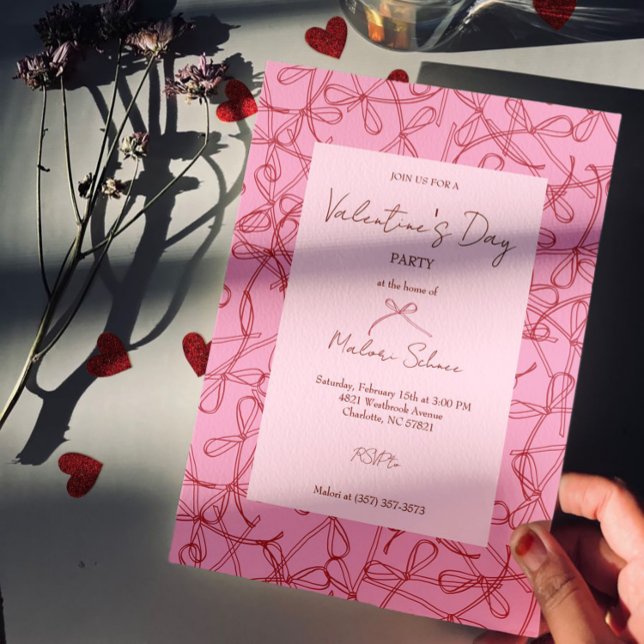 JOIN US FOR A
Valentine's Day
PARTY
at the home of
Malori Schnee
Saturday, February 15th at 3:00 PM
4821 Westbrook Avenue
Charlotte, NC 57821
RSVP to
Malori at (357) 357-3573